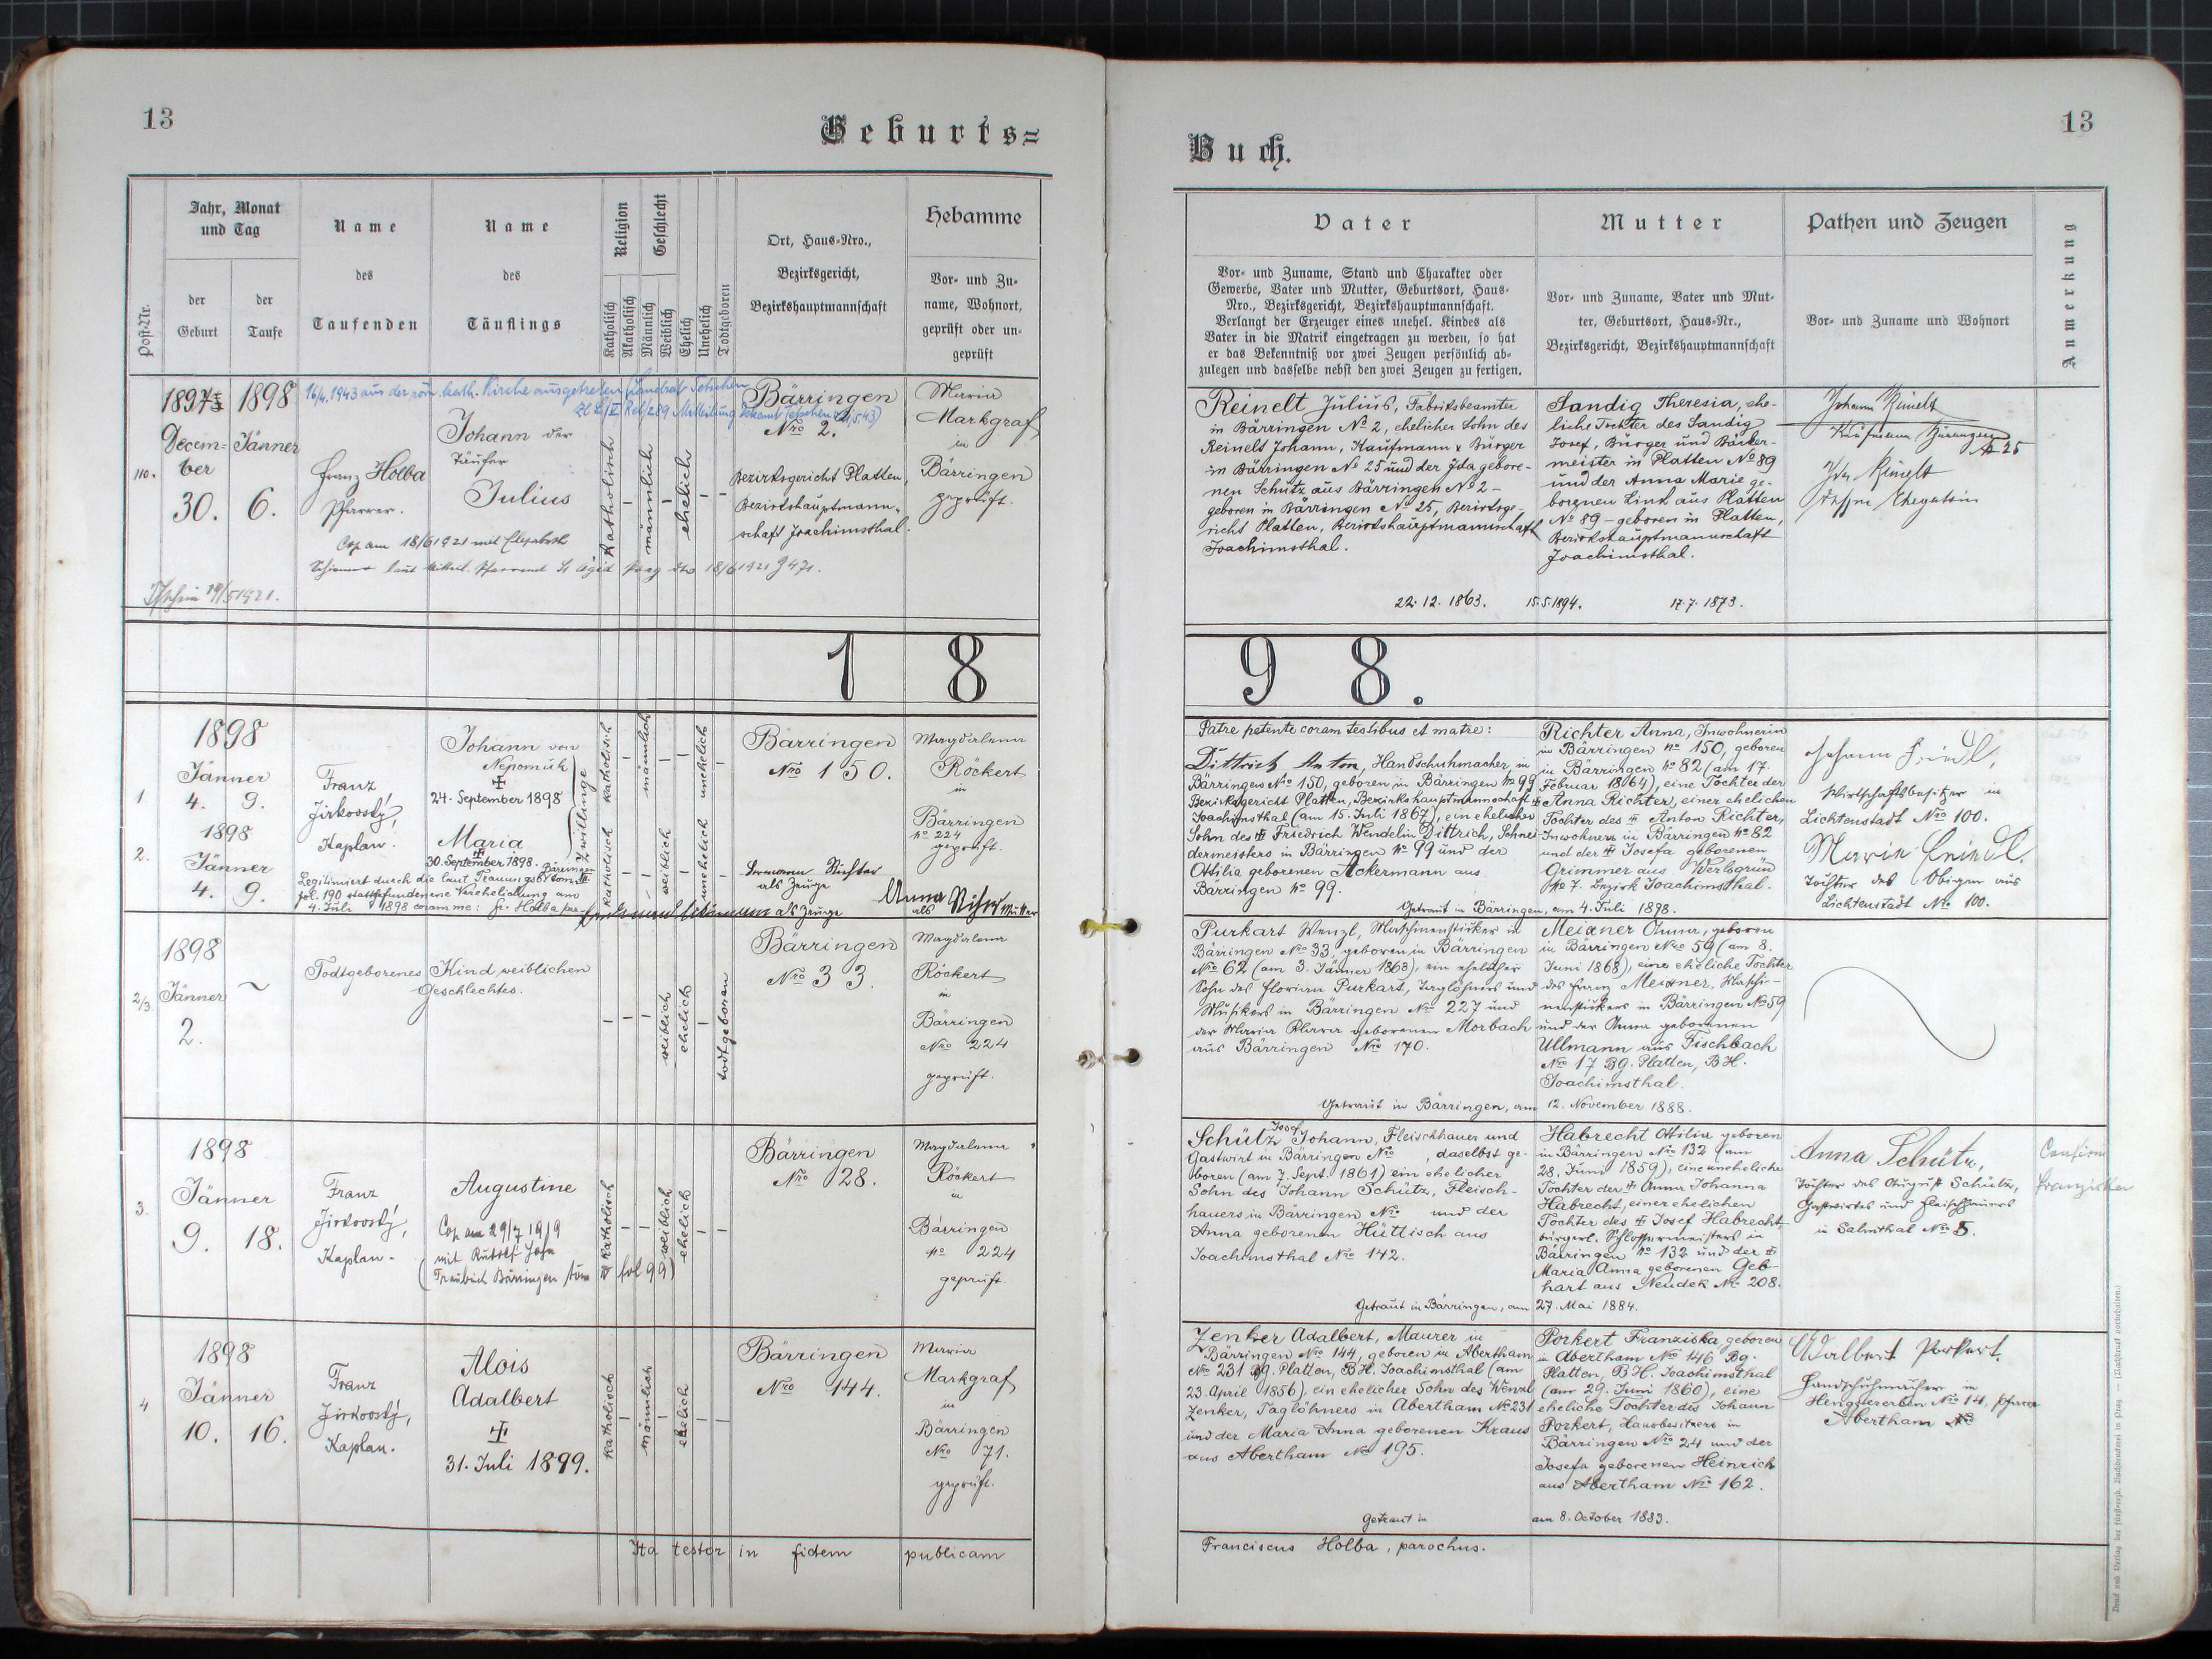 13
Geburts=
Jahr, Monat
und Tag
der
Geburt
der
Taufe
Post-Nr.
Name
des
Taufenden
Name
des
Täuflings
Religion
Geschlecht
Katholisch
Akatholisch
Männlich
Weiblich
Ehelich
Unehelich
Todtgeboren
Ort, Haus-Nro.,
Bezirksgericht,
Bezirkshauptmannschaft
Hebamme
Vor- und Zu-
name, Wohnort,
geprüft oder un-
geprüft
110.
1897
Decem-
ber
30.
1898
Jänner
6.
16/4. 1943 aus der röm. kath. Kirche ausgetreten (Landrat Tetschen
Franz Holba
Pfarrer.
Johann der
Täufer
Julius
Cop am 18/6 1921 mit Elisabeth
katholisch
männlich
ehelich
Bärringen
Nro 2.
Bezirksgericht Platten,
Bezirkshauptmann-
schaft Joachimsthal.
Maria
Markgraf
in
Bärringen
geprüft.
18
1.
1898
Jänner
4. 9.
Franz
Jirkovský,
Kaplan.
Johann von
Nepomuk
24. September 1898
Zwillinge
katholisch
männlich
unehelich
2.
1898
Jänner
4. 9.
Maria
30. September 1898.
Legitimiert durch die laut Trauungsb. Bärringen tom. III
fol. 190 stattgefundene Verehelichung am
4. Juli 1898 coram me: Fr. Holba par.
katholisch
weiblich
unehelich
Bärringen
Nro 150.
Hermann Richter
als Zeuge
als Zeuge
Anna Richter
als Mutter
Magdalena
Röckert
in
Bärringen
No 224
geprüft.
2/3.
1898
Jänner
2.
Todtgeborenes Kind weiblichen
Geschlechtes.
weiblich
ehelich
todtgeboren
Bärringen
Nro 33.
Magdalena
Röckert
in
Bärringen
Nro 224
geprüft.
3.
1898
Jänner
9. 18.
Franz
Jirkovský,
Kaplan.
Augustine
Cop. am 29/7 1919
mit Rudolf Hahn
(Traubuch Bärringen tom
IV fol 99)
katholisch
weiblich
ehelich
Bärringen
Nro 28.
Magdalena
Röckert
in
Bärringen
No 224
geprüft.
4
1898
Jänner
10. 16.
Franz
Jirkovský,
Kaplan.
Alois
Adalbert
31. Juli 1899.
katholisch
männlich
ehelich
Bärringen
Nro 144.
Maria
Markgraf
in
Bärringen
Nro 71.
geprüft.
Ita testor in fidem publicam
13
Buch.
Vater
Vor- und Zuname, Stand und Charakter oder
Gewerbe, Vater und Mutter, Geburtsort, Haus-
Nro., Bezirksgericht, Bezirkshauptmannschaft.
Verlangt der Erzeuger eines unehel. Kindes als
Vater in die Matrik eingetragen zu werden, so hat
er das Bekenntniß vor zwei Zeugen persönlich ab-
zulegen und dasselbe nebst den zwei Zeugen zu fertigen.
Mutter
Vor- und Zuname, Vater und Mut-
ter, Geburtsort, Haus-Nr.,
Bezirksgericht, Bezirkshauptmannschaft
Pathen und Zeugen
Vor- und Zuname und Wohnort
Anmerkung
Reinelt Julius, Fabriksbeamter
in Bärringen No 2, ehelicher Sohn des
Reinelt Johann, Kaufmann u Bürger
in Bärringen No 25 und der Ida gebore-
nen Schütz aus Bärringen No 2 -
geboren in Bärringen No 25, Bezirksge-
richt Platten, Bezirkshauptmannschaft
Joachimsthal.
22. 12. 1863. 15. 5. 1894.
Sandig Theresia, ehe-
liche Tochter des Sandig
Josef, Bürger und Bäcker-
meister in Platten No 89
und der Anna Marie ge-
borenen Link aus Platten
No 89 - geboren in Platten,
Bezirkshauptmannschaft
Joachimsthal.
17. 7. 1873.
Johann Reinelt
Kaufmann Bärringen
No 25
Ida Reinelt
dessen Ehegattin
98.
Patre petente coram testibus et matre:
Dittrich Anton, Handschuhmacher in
Bärringen No 150, geboren in Bärringen No 99
Bezirksgericht Platten, Bezirkshauptmannschaft
Joachimsthal (am 15. Juli 1867), ein ehelicher
Sohn des Friedrich Wendelin Dittrich, Schnei-
dermeisters in Bärringen No 99 und der
Ottilia geborenen Ackermann aus
Bärringen No 99.
Getraut in Bärringen, am 4. Juli 1898.
Richter Anna, Inwohnerin
in Bärringen No 150, geboren
in Bärringen No 82 (am 17.
Februar 1864), eine Tochter der
Anna Richter, einer ehelichen
Tochter des Anton Richter,
Inwohners in Bärringen No 82
und der Josefa geborenen
Grimmer aus Werlsgrün
No 7. Bezirk Joachimsthal.
Johann Friedl,
Wirtschaftsbesitzer in
Lichtenstadt Nro 100.
Maria Friedl.
Tochter des Obigen aus
Lichtenstadt Nro 100.
Purkart Wenzl, Maschinensticker in
Bärringen Nro 33, geboren in Bärringen
Nro 62 (am 3. Jänner 1863), ein ehelicher
Sohn des Florian Purkart, Taglöhners und
Musikers in Bärringen Nro 227 und
der Maria Klara geborenen Morbach
aus Bärringen Nro 170.
Getraut in Bärringen, am 12. November 1888.
Meixner Anna, geboren
in Bärringen Nro 59 (am 8.
Juni 1868), eine eheliche Tochter
des Franz Meixner, Maschi-
nenstickers in Bärringen No 59
und der Anna geborenen
Ullmann aus Fischbach
Nro 17 Bg. Platten, BH.
Joachimsthal.
Schütz Josef Johann, Fleischhauer und
Gastwirt in Bärringen Nro , daselbst ge-
boren (am 7. Sept. 1861) ein ehelicher
Sohn des Johann Schütz, Fleisch-
hauers in Bärringen Nro und der
Anna geborenen Hüttisch aus
Joachimsthal Nro 142.
Getraut in Bärringen, am 27. Mai 1884.
Habrecht Ottilia geboren
in Bärringen Nro 132 (am
28. Juni 1859), eine uneheliche
Tochter der Anna Johanna
Habrecht, einer ehelichen
Tochter des Josef Habrecht
bürgerl. Schlossermeisters in
Bärringen No 132 und der
Maria Anna geborenen Geb-
hart aus Neudek Nr 208.
Anna Schütz,
Tochter des August Schütz,
Gastwirtes und Fleischhauers
in Salmthal Nro 5.
Confirm
Franziska
Zenker Adalbert, Maurer in
Bärringen Nro 144, geboren in Abertham
Nro 231 Bg. Platten, BH. Joachimsthal (am
23. April 1856), ein ehelicher Sohn des Wenzl
Zenker, Taglöhners in Abertham No 231
und der Maria Anna geborenen Kraus
aus Abertham Nro 195.
Getraut in am 8. October 1883.
Porkert Franziska geboren
in Abertham Nro 146 Bg.
Platten, BH. Joachimsthal
(am 29. Juni 1860), eine
eheliche Tochter des Johann
Porkert, Hausbesitzers in
Bärringen Nro 24 und der
Josefa geborenen Heinrich
aus Abertham Nro 162.
Adalbert Porkert.
Handschuhmacher in
Hengstererben Nro 14, Pfarre
Abertham
Franciscus Holba, parochus.
Druck und Verlag der fürsterzb. Buchdruckerei in Prag. — (Nachdruck vorbehalten.)